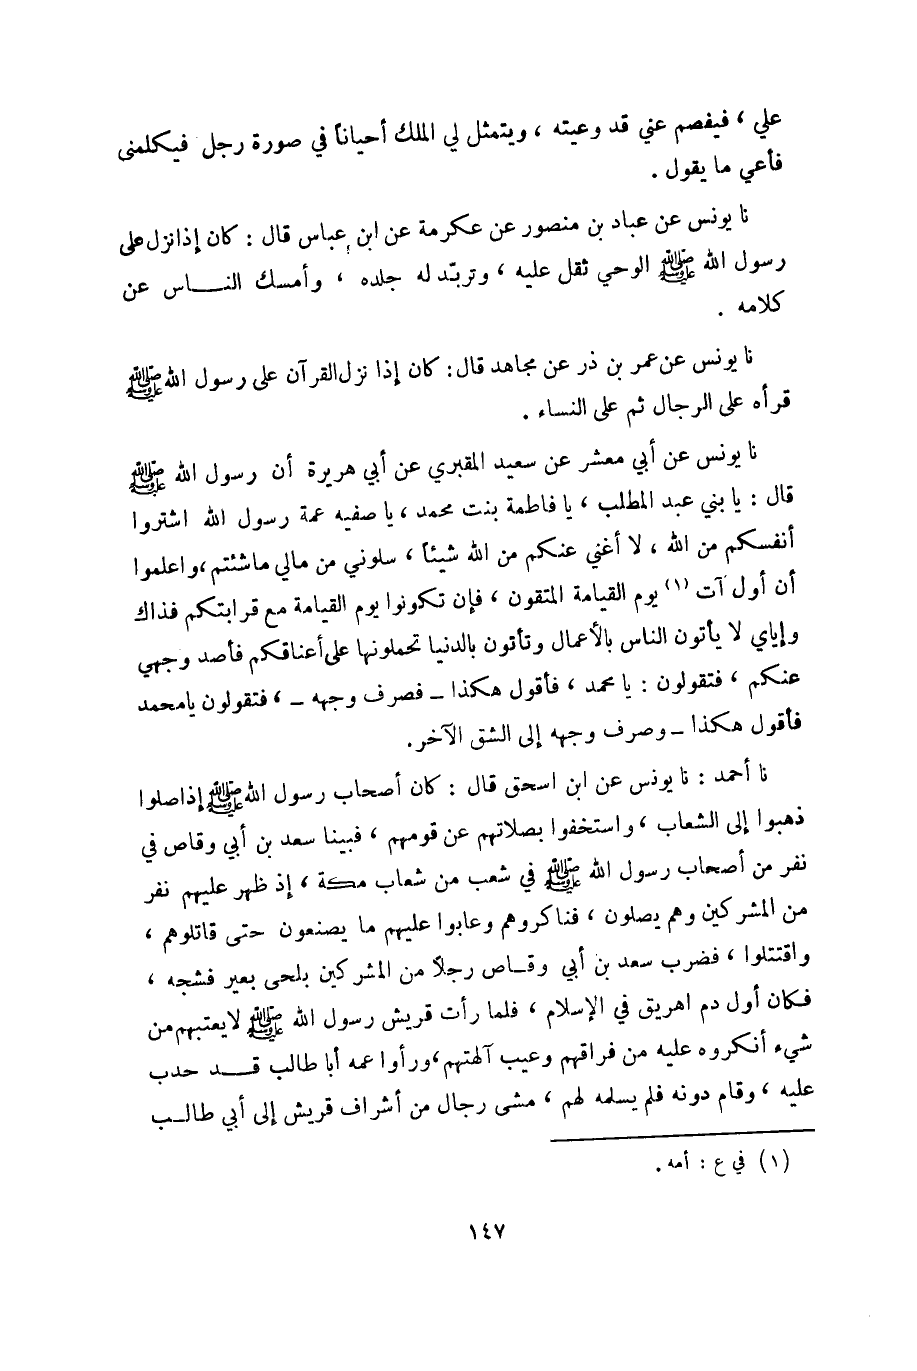 علي ، فيفصم عني قد وعيته ، ويتمثل لي الملك أحياناً في صورة رجل فيكلمنى
فأعي ما يقول .
نا يونس عن عباد بن منصور عن عكرمة عن ابن عباس قال : كان إذا نزل على
رسول الله ﷺ الوحي ثقل عليه ، وتربّد له جلده ، وأمسك النـــاس عن
كلامه .
نا يونس عن عمر بن ذر عن مجاهد قال : كان إذا نزل القرآن على رسول الله ﷺ
قرأه على الرجال ثم على النساء .
نا يونس عن أبي معشر عن سعيد المقبري عن أبي هريرة أن رسول الله ﷺ
قال : يا بني عبد المطلب ، يا فاطمة بنت محمد ، يا صفيه عمة رسول الله اشتروا
أنفسكم من الله ، لا أغني عنكم من الله شيئاً ، سلوني من مالي ما شئتم ، واعلموا
أن أول آت (١) يوم القيامة المتقون ، فإن تكونوا يوم القيامة مع قرابتكم فذاك
وإياي لا يأتون الناس بالأعمال وتأتون بالدنيا تحملونها على أعناقكم فأصد وجهي
عنكم ، فتقولون : يا محمد ، فأقول هكذا ــ فصرف وجهه ــ ، فتقولون يا محمد
فأقول هكذا ــ وصرف وجهه إلى الشق الآخر .
نا أحمد : نا يونس عن ابن اسحق قال : كان أصحاب رسول الله ﷺ إذا صلوا
ذهبوا إلى الشعاب ، واستخفوا بصلاتهم عن قومهم ، فبينا سعد بن أبي وقاص في
نفر من أصحاب رسول الله ﷺ في شعب من شعاب مكة ، إذ ظهر عليهم نفر
من المشركين وهم يصلون ، فناكروهم وعابوا عليهم ما يصنعون حتى قاتلوهم ،
واقتتلوا ، فضرب سعد بن أبي وقـاص رجلاً من المشركين بلحى بعير فشجه ،
فكان أول دم اهريق في الإسلام ، فلما رأت قريش رسول الله ﷺ لا يعتبهم من
شيء أنكروه عليه من فراقهم وعيب آلهتهم ، ورأوا عمه أبا طالب قـــد حدب
عليه ، وقام دونه فلم يسلمه لهم ، مشى رجال من أشراف قريش إلى أبي طالـب
(١) في ع : أمه .
١٤٧